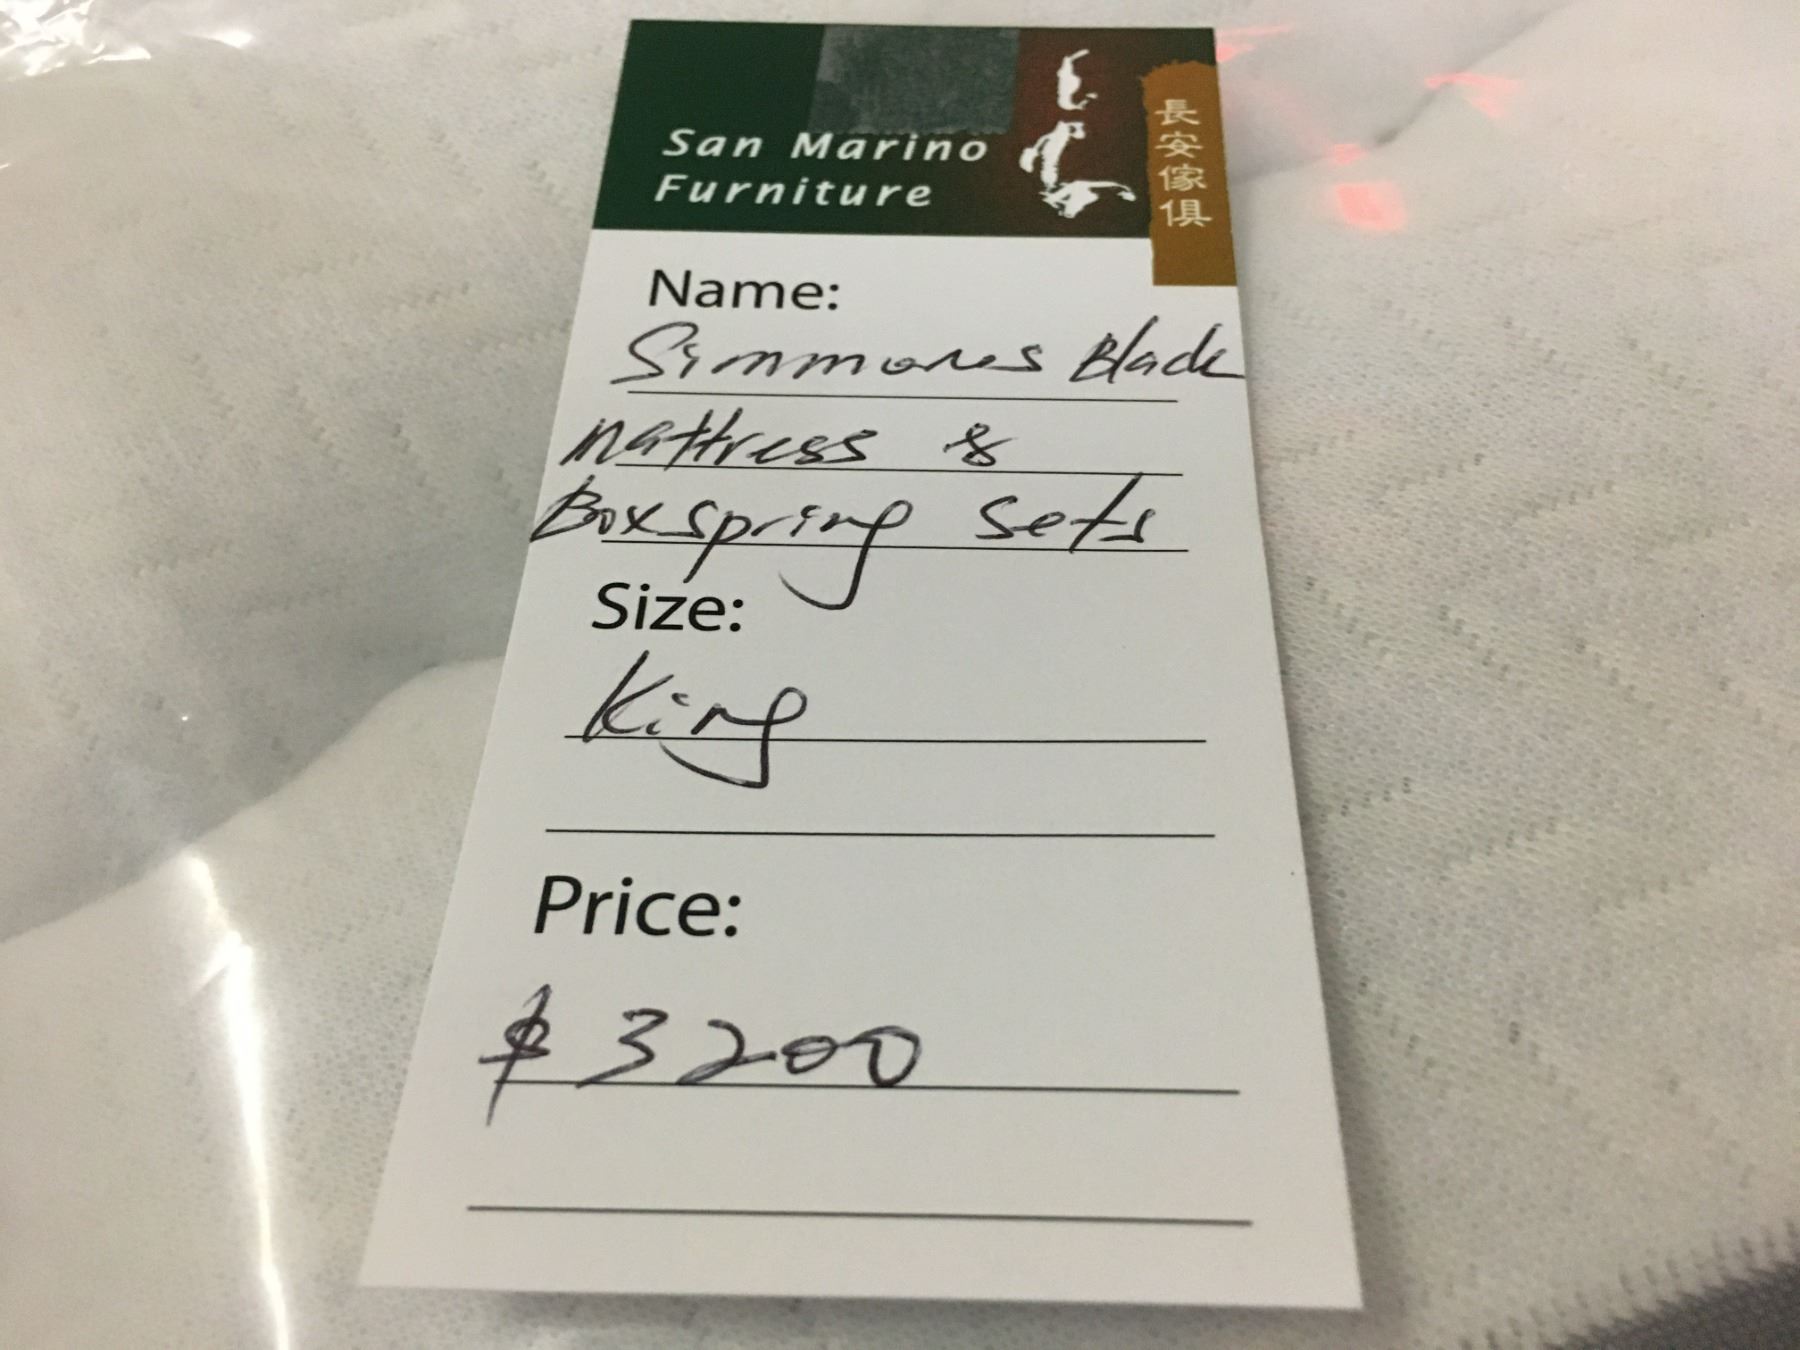 San Marino
Furniture
長安傢俱
Name:
Simmons Black
mattress &
Boxspring sets
Size:
King
Price:
$ 3200